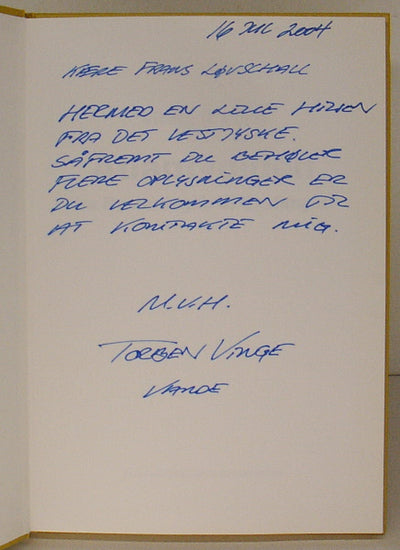 16 JUL 2004
KÆRE FRANS LØVSCHALL
HERMED EN LILLE HILSEN
FRA DET VESTJYSKE.
SÅFREMT DU BEHØVER
FLERE OPLYSNINGER ER
DU VELKOMMEN TIL
AT KONTAKTE MIG.
M.V.H.
TORBEN VINGE
VARDE